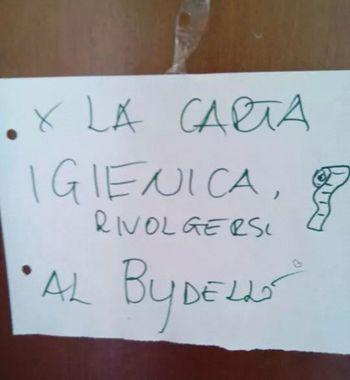 X LA CARTA
IGIENICA,
RIVOLGERSI
AL BYDELLÓ